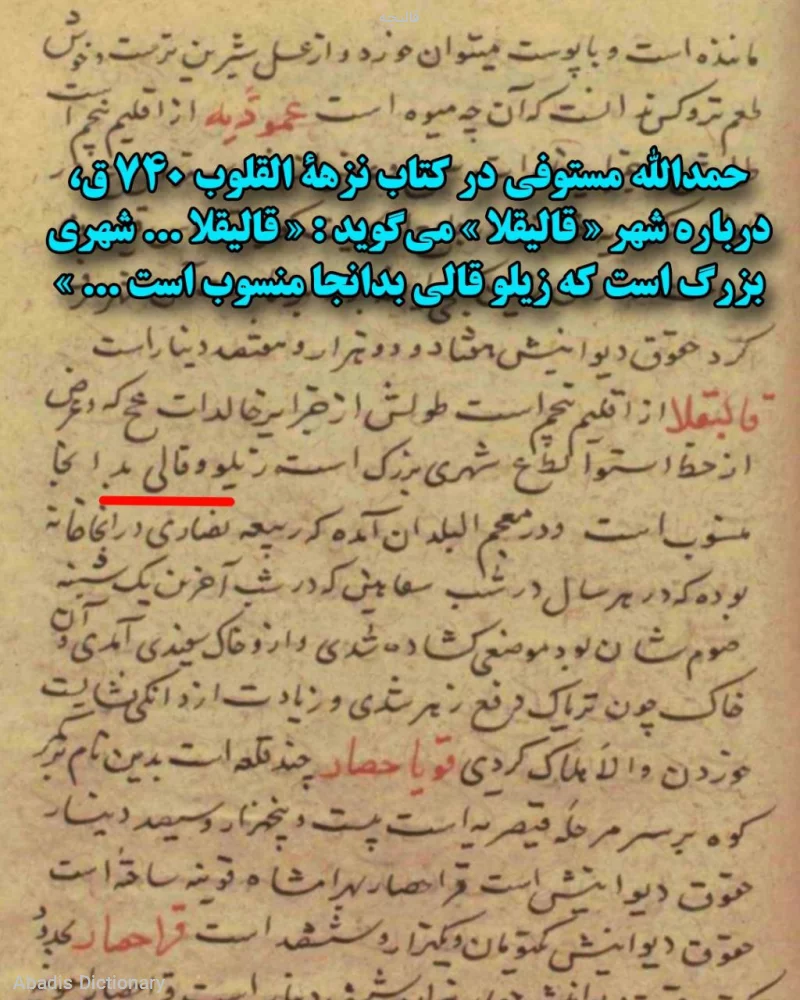 مانده است و با پوست میتوان خورد و از عسل شیرین ترست و خوش
طعم تر و کس نداند که آن چه میوه است عموریه از اقلیم پنجم است
حمدالله مستوفی در کتاب نزههٔ القلوب ۷۴۰ ق،
درباره شهر « قالیقلا » می‌گوید : « قالیقلا ... شهری
بزرگ است که زیلو قالی بدانجا منسوب است ... »
کرد حقوق دیوانیش هفتاد و دو هزار و هفتصد دینار است
قالیقلا از اقلیم پنجم است طولش از جزایر خالدات عح که و عرض
از خط استوا لط ع شهری بزرک است زیلو و قالی بدانجا
منسوب است و در معجم البلدان آمده که ربیعه نصاری در انجا خانه
بوده که در هر سال در شب سعانین که در شب آخرین یک شنبه
صوم شان بود موضعی کشاده شدی و ازو خاک سفیدی آمدی و آن
خاک چون تریاک دفع زهر شدی و زیادت از دانکی نشایست
خوردن والا هلاک کردی قویا حصار چند قلعه است بدین نام بر
کوه بر سر مرحله قیصریه است بیست و پنجهزار و سیصد دینار
حقوق دیوانیش است قراحصار بهرامشاه قریه ساخته است
حقوق دیوانیش یکتومان و یکهزار و ششصد است قراحصار بحدود
Abadis Dictionary